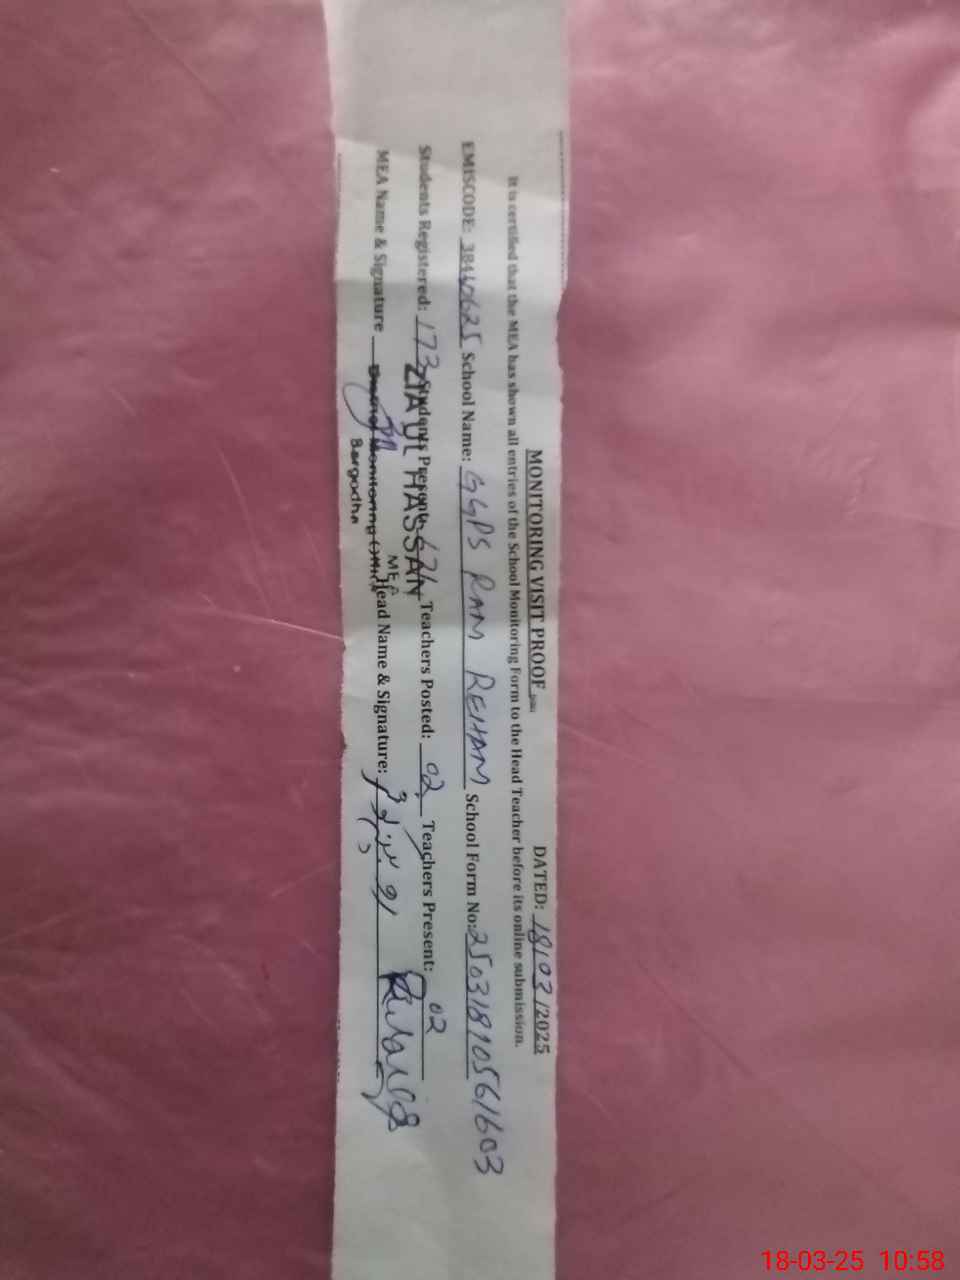 MONITORING VISIT PROOF DATED: 18/03/2025
It is certified that the MEA has shown all entries of the School Monitoring Form to the Head Teacher before its online submission.
EMISCODE: 38440625 School Name: GGPS RAM REHAM School Form No: 25031810561603
Students Registered: 173 Students Present: Teachers Posted: 02 Teachers Present: 02
ZIA UL HASSAN
MEA
MEA Name & Signature Head Name & Signature:
Monitoring
Sargodha
18-03-25 10:58